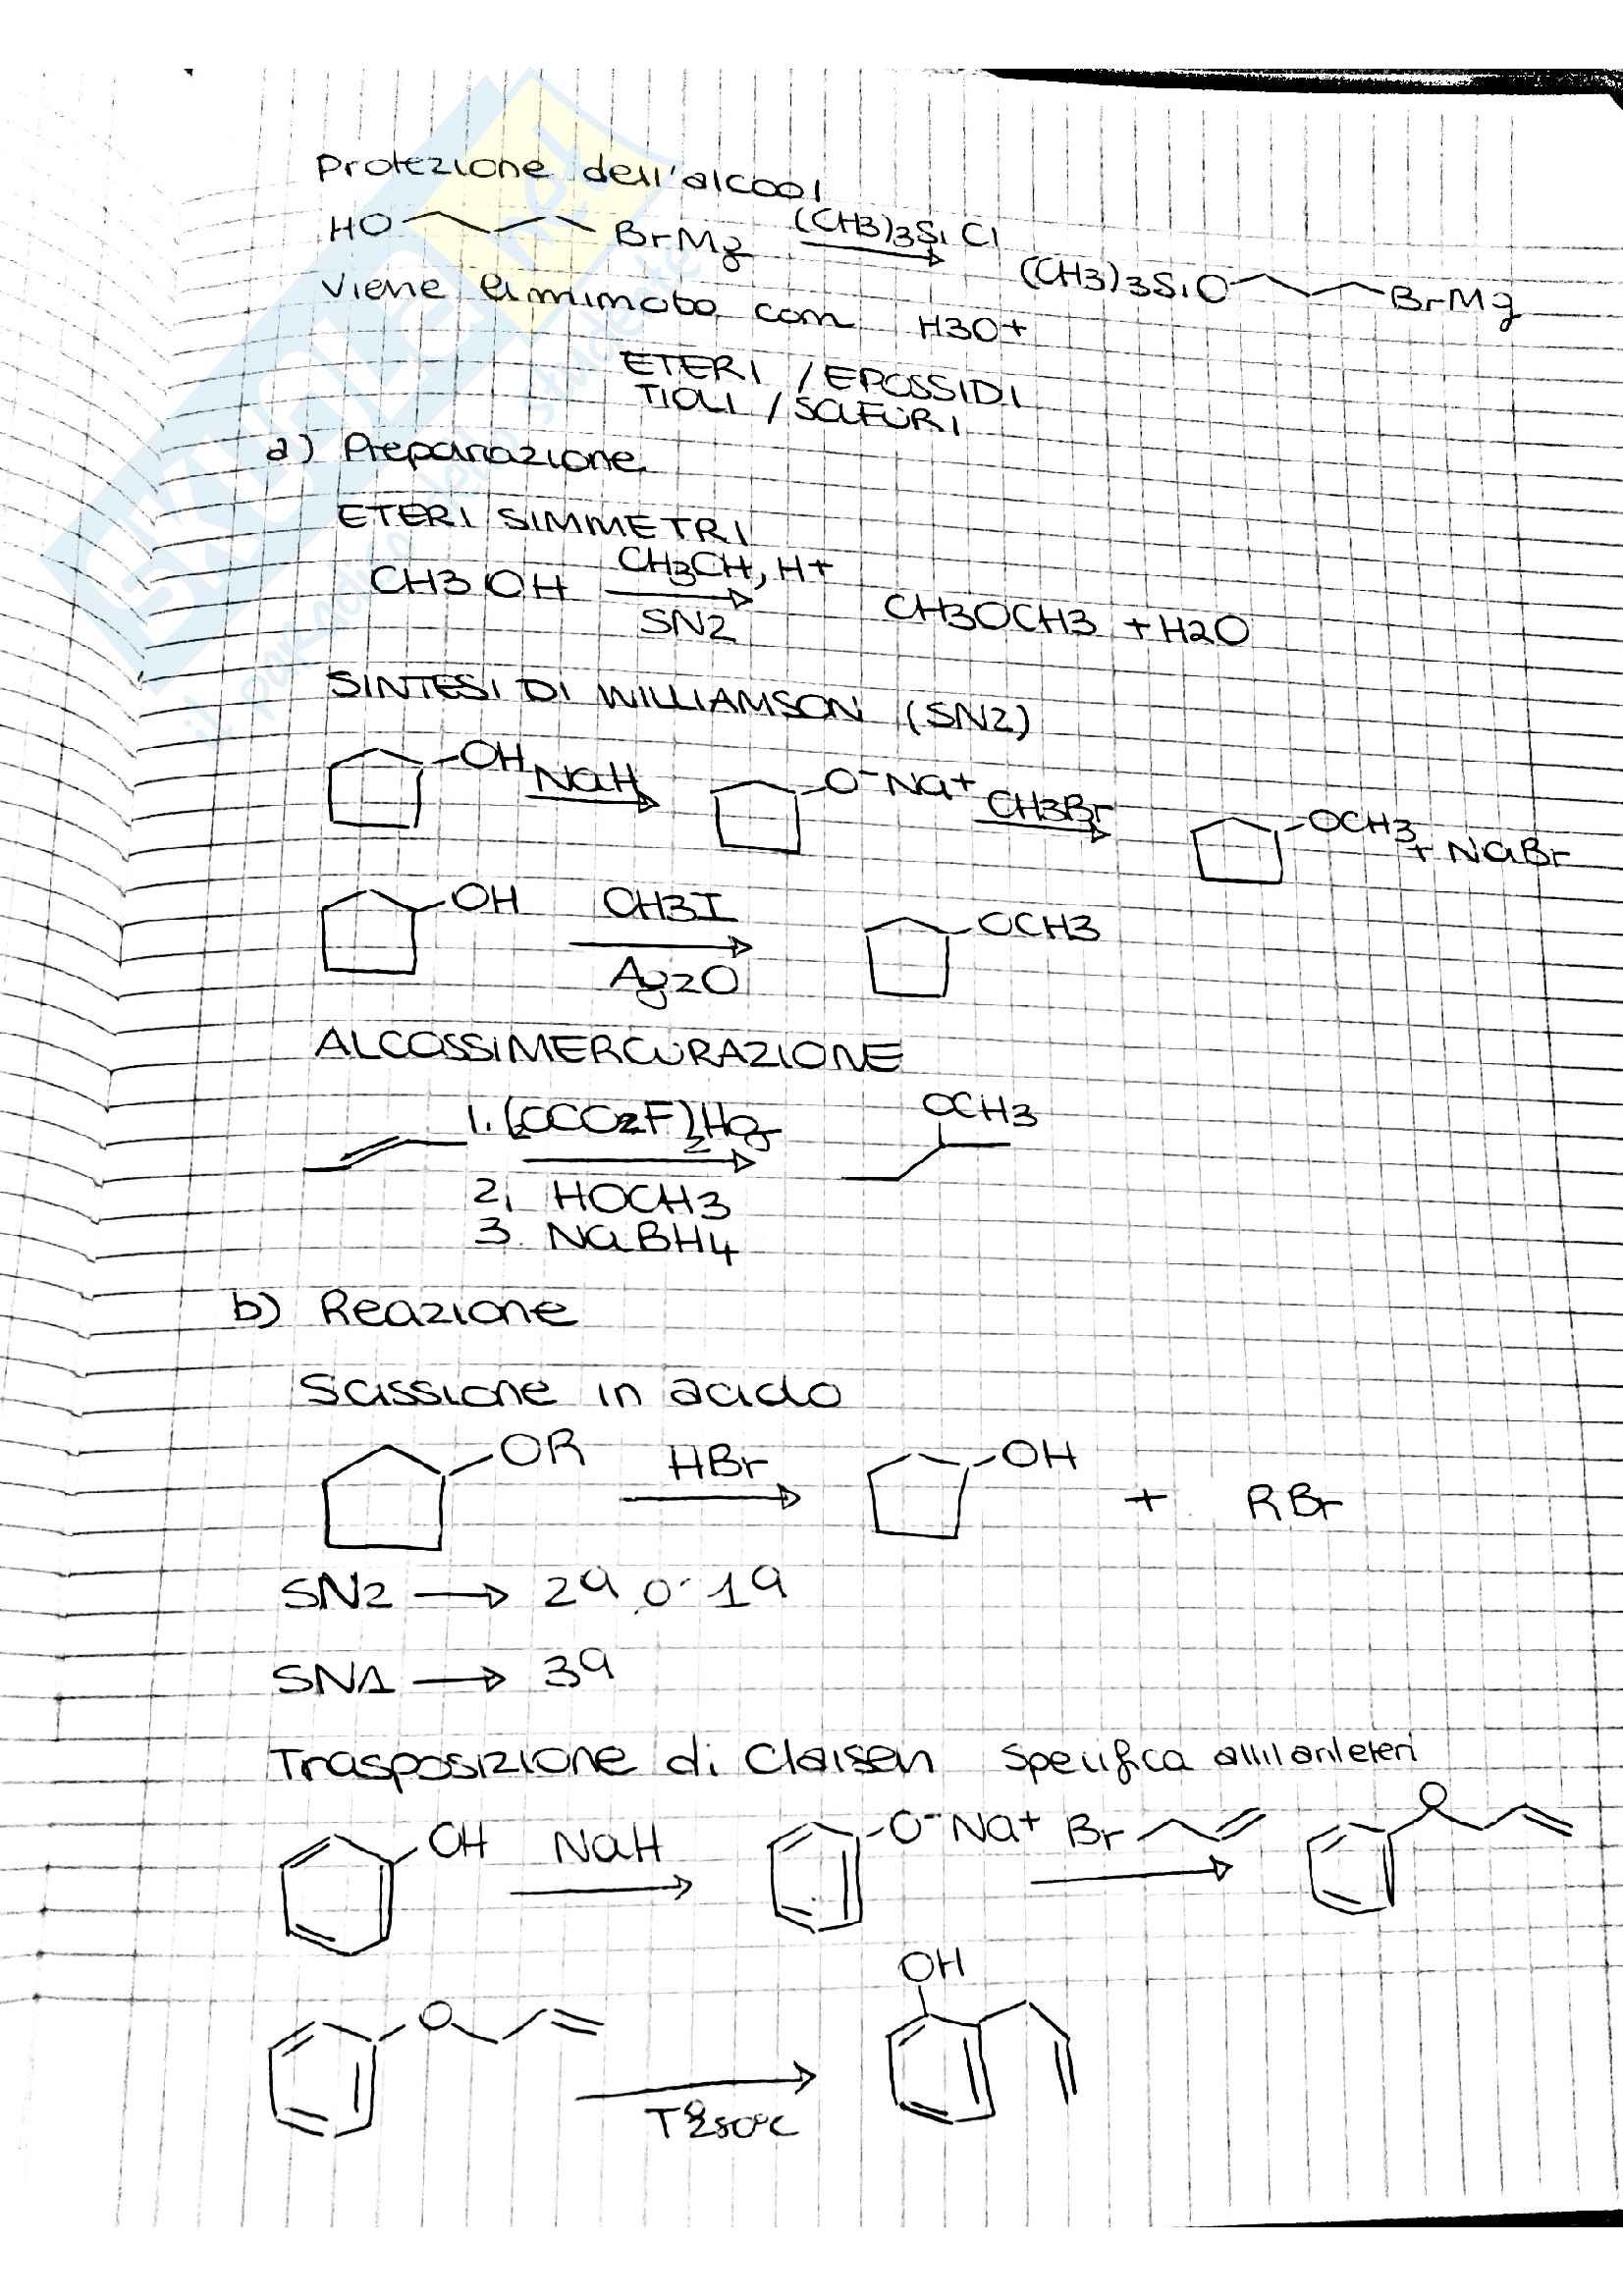 Protezione dell'alcool
HO BrMg (CH3)3SiCl (CH3)3SiO BrMg
Viene eliminato con H3O+
ETERI / EPOSSIDI
TIOLI / SOLFURI
a) Preparazione
ETERI SIMMETRI
CH3OH CH3CH, H+ CH3OCH3 + H2O
SN2
SINTESI DI WILLIAMSON (SN2)
OH NaH O-Na+ CH3Br OCH3 + NaBr
OH CH3I OCH3
Ag2O
ALCOSSIMERCURAZIONE
OCH3
2. HOCH3
3. NaBH4
b) Reazione
Scissione in acido
OR HBr OH + RBr
SN2 → 2ª o 1ª
SN1 → 3ª
Trasposizione di Claisen Specifica allilarileteri
OH NaH O-Na+ Br O
OH
O